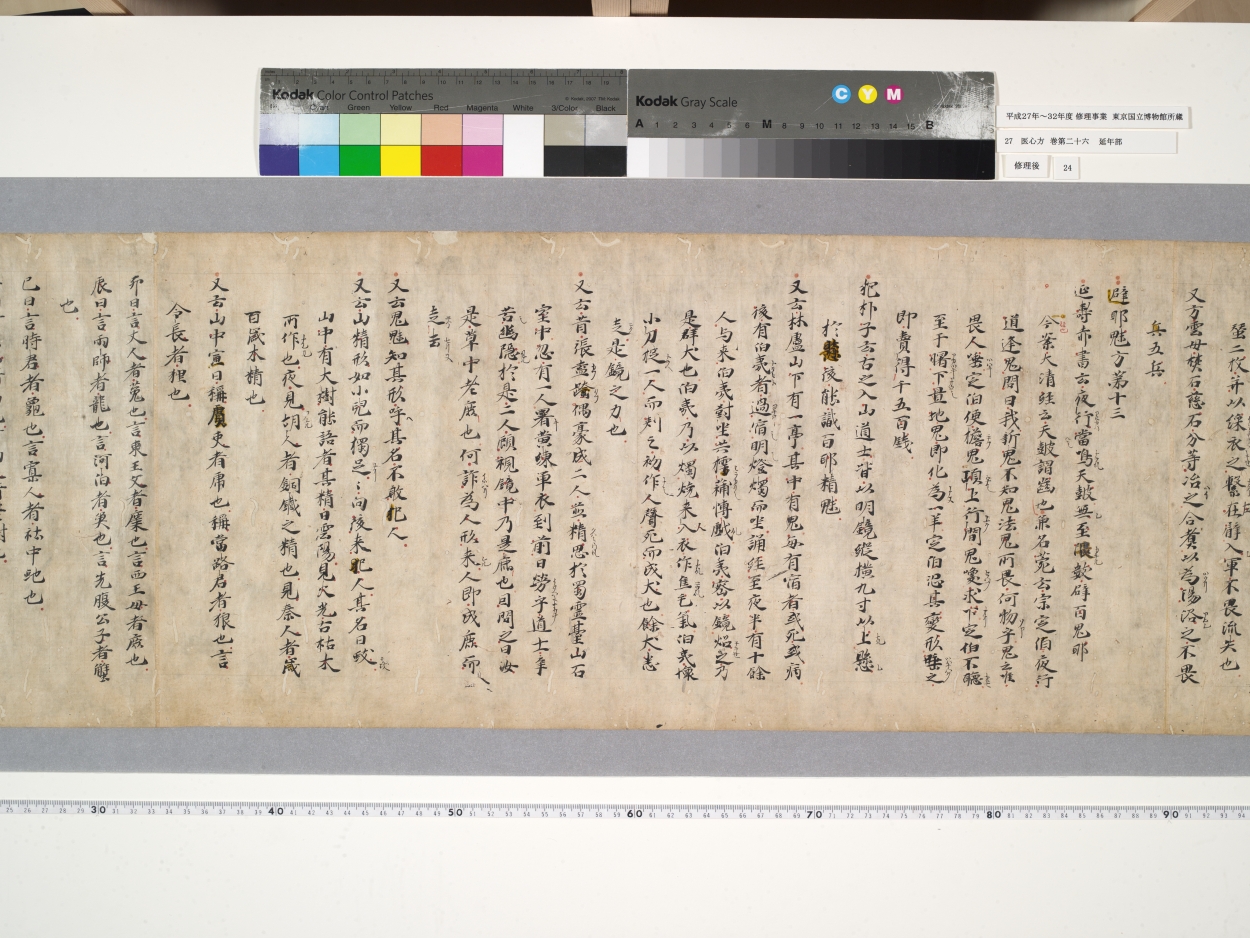 Kodak Color Control Patches
Blue
Cyan
Green
Yellow
Red
Magenta
White
3/Color
Black
Kodak Gray Scale
C Y M
A 1 2 3 4 5 6 M 8 9 10 11 12 13 14 15 B
平成27年〜32年度 修理事業 東京国立博物館所蔵
27 医心方 巻第二十六 延年部
修理後
24
螢二枚并以絳衣之繫在臂入軍不畏流矢也
又方雲母煑石慈石分等冶之合
以為湯浴之不畏
兵五兵
避耶魅方第十三
延壽赤書云夜行當鳴天皷無至
數辟百鬼耶
今案大清經云天皷謂齒也
名
云宗定伯夜行
道逢鬼問曰我新鬼不知鬼法鬼所畏何物乎鬼云唯
畏人唾定伯便擔鬼頂上行間鬼
求下定伯不聽
至于
下著地鬼即化為一羊定伯恐其變形唾之
即賣得千五百錢
抱朴子云古之入山道士皆以明鏡縱横九寸以上懸
於
後能識百耶精魅
又云林慮山下有一亭其中有鬼每有宿者或死或病
後有伯夷者過宿明燈燭而坐誦經至夜半有十餘
人与来伯夷對坐共樗蒲博戲伯夷密以鏡照之乃
是群犬也伯夷乃以燭燒来人衣作焦毛氣伯夷懷
小刀捉一人而刺之初作人聲死而成犬也餘犬悉
走是鏡之力也
又云昔張盖蹹偶豪成二人並精思於蜀雲臺山石
室中忽有一人著黄練單衣到前曰勞乎道士辛
苦幽隱於是二人顧視鏡中乃是鹿也因問之曰汝
是草中老鹿也何詐為人形来人即成鹿而
走去
又云鬼魅知其形呼其名不敢犯人
又云山精形如小兒而獨足々向後来犯人其名曰蚑
山中有大樹能語者其精曰雲陽見火光古枯木
所作也夜見胡人者銅鐵之精也見秦人者
百歲木精也
又云山中寅日稱虞吏者虎也稱當路君者狼也言
令長者狸也
卯日言丈人者菟也言東王父者麋也言西王母者鹿也
辰日言雨師者龍也言河伯者魚也言无腹公子者蟹
也
巳日言時君者龜也言寡人者社中虵也
30 40 50 60 70 80 90